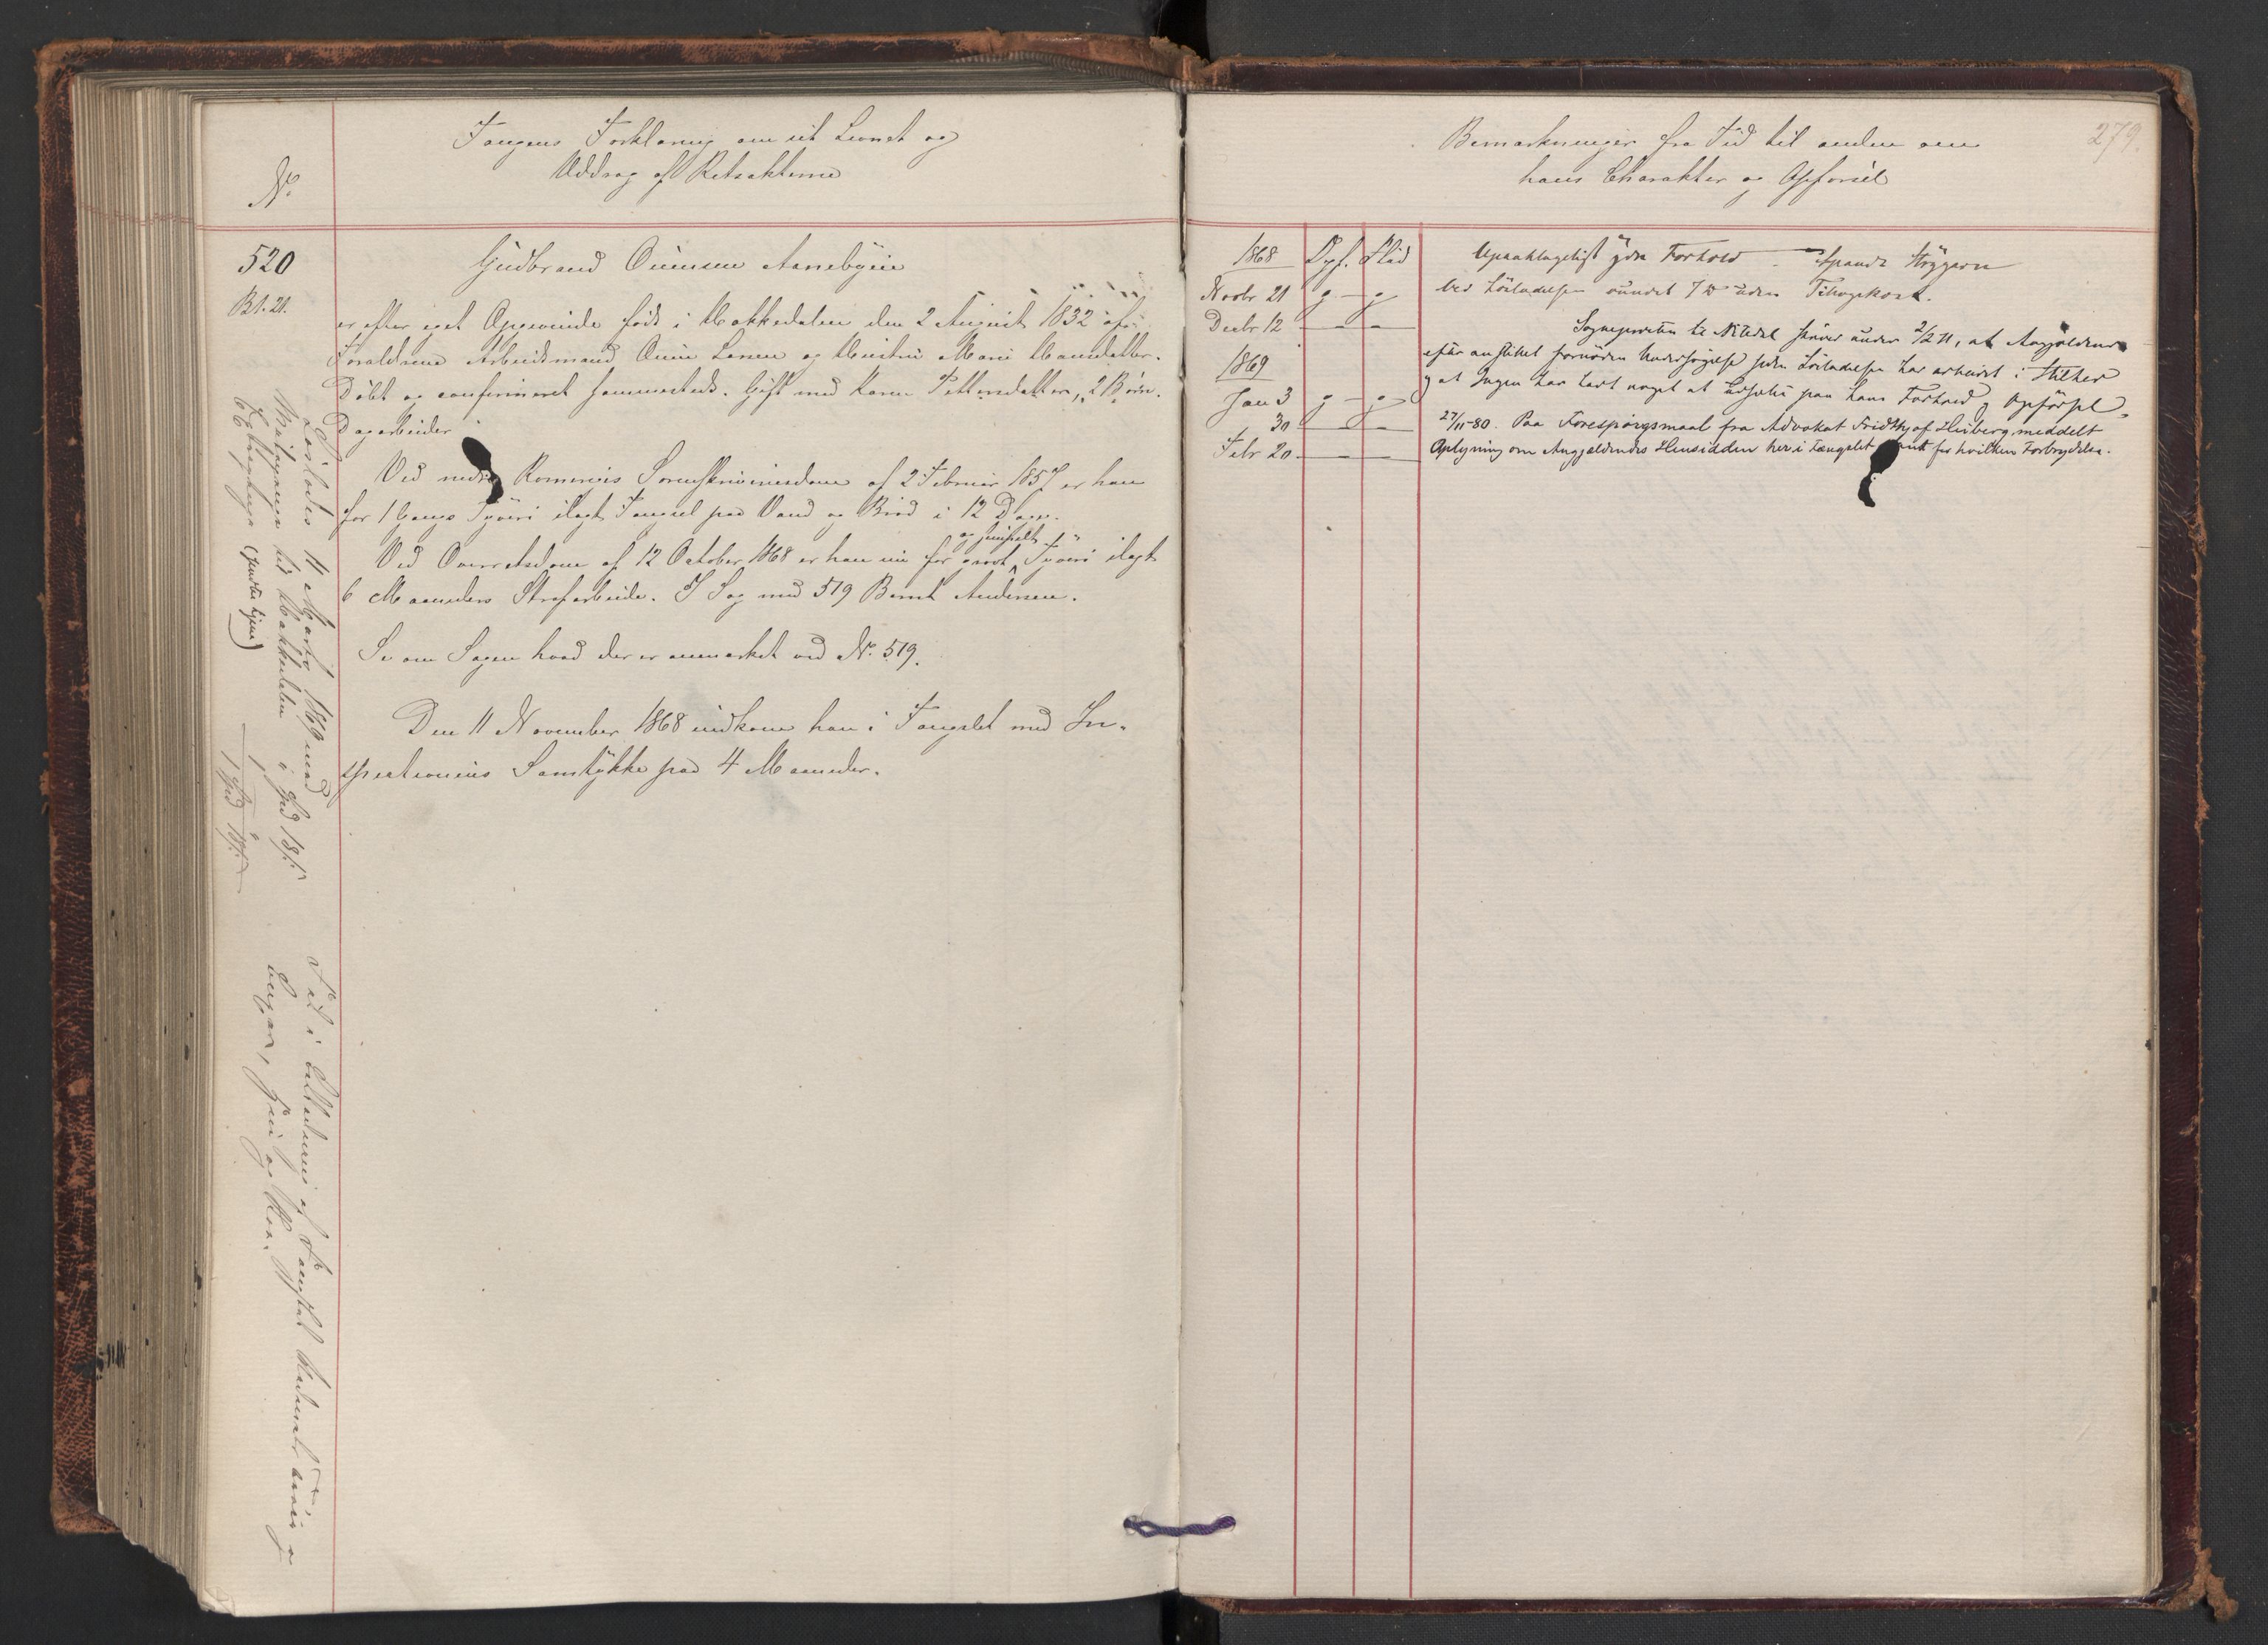 No.
Fangens Forklaring om sit Levnet og
Uddrag af Retsakterne
520
Bl. 21.
Gudbrand Ouensen Aanebyeie
er efter eget Opgivende født i Hakkedalen den 2 August 1832 af
Forældrene Arbeidsmand Ouen Larsen og Hustru Mari Hansdatter.
Døbt og confirmeret sammesteds. Gift med Karen Pettersdatter, 2 Børn.
Dagarbeider
Ved nedre Romeriges Sorenskriverisdom af 2 Februar 1857 er han
for 1 Gangs Tyveri ilagt Fængsel paa Vand og Brød i 12 Dage.
og simpelt
Ved Overretsdom af 12 October 1868 er han nu for grovt Tyveri ilagt
6 Maaneders Strafarbeide. I Sag med 519 Bernt Andersen.
Se om Sagen hvad der er anmærket ved No. 519.
Den 11 November 1868 indkom han i Fængslet med In-
spectionens Samtykke paa 4 Maaneder.
Løslodes 11 Marts 1869 med
Reisepenge til Hakkedalen
Fød i
af Fængslet
279.
Bemærkninger fra Tid til anden om
hans Charakter og Opførsel
1868 Opf. Flid
Novbr 21 g g
Decbr 12 – –
1869
Jan 3 g g
30 – –
Febr 20 – –
Upaaklageligt ydre Forhold –
ved Løsladelsen
Sognepresten til Nitedal skriver under 2/2 71, at Angjældende
efter anstillet fornøden Undersøgelse siden Løsladelsen har arbeidet i
og at Ingen har havt noget at udsætte paa hans Forhold og Opførsel.
27/11-80. Paa Forespørgsmaal fra Advokat Fridthjof Heiberg meddelt
Oplysning om Angjældendes Hensidden her i Fængslet samt for hvilken Forbrydelse.